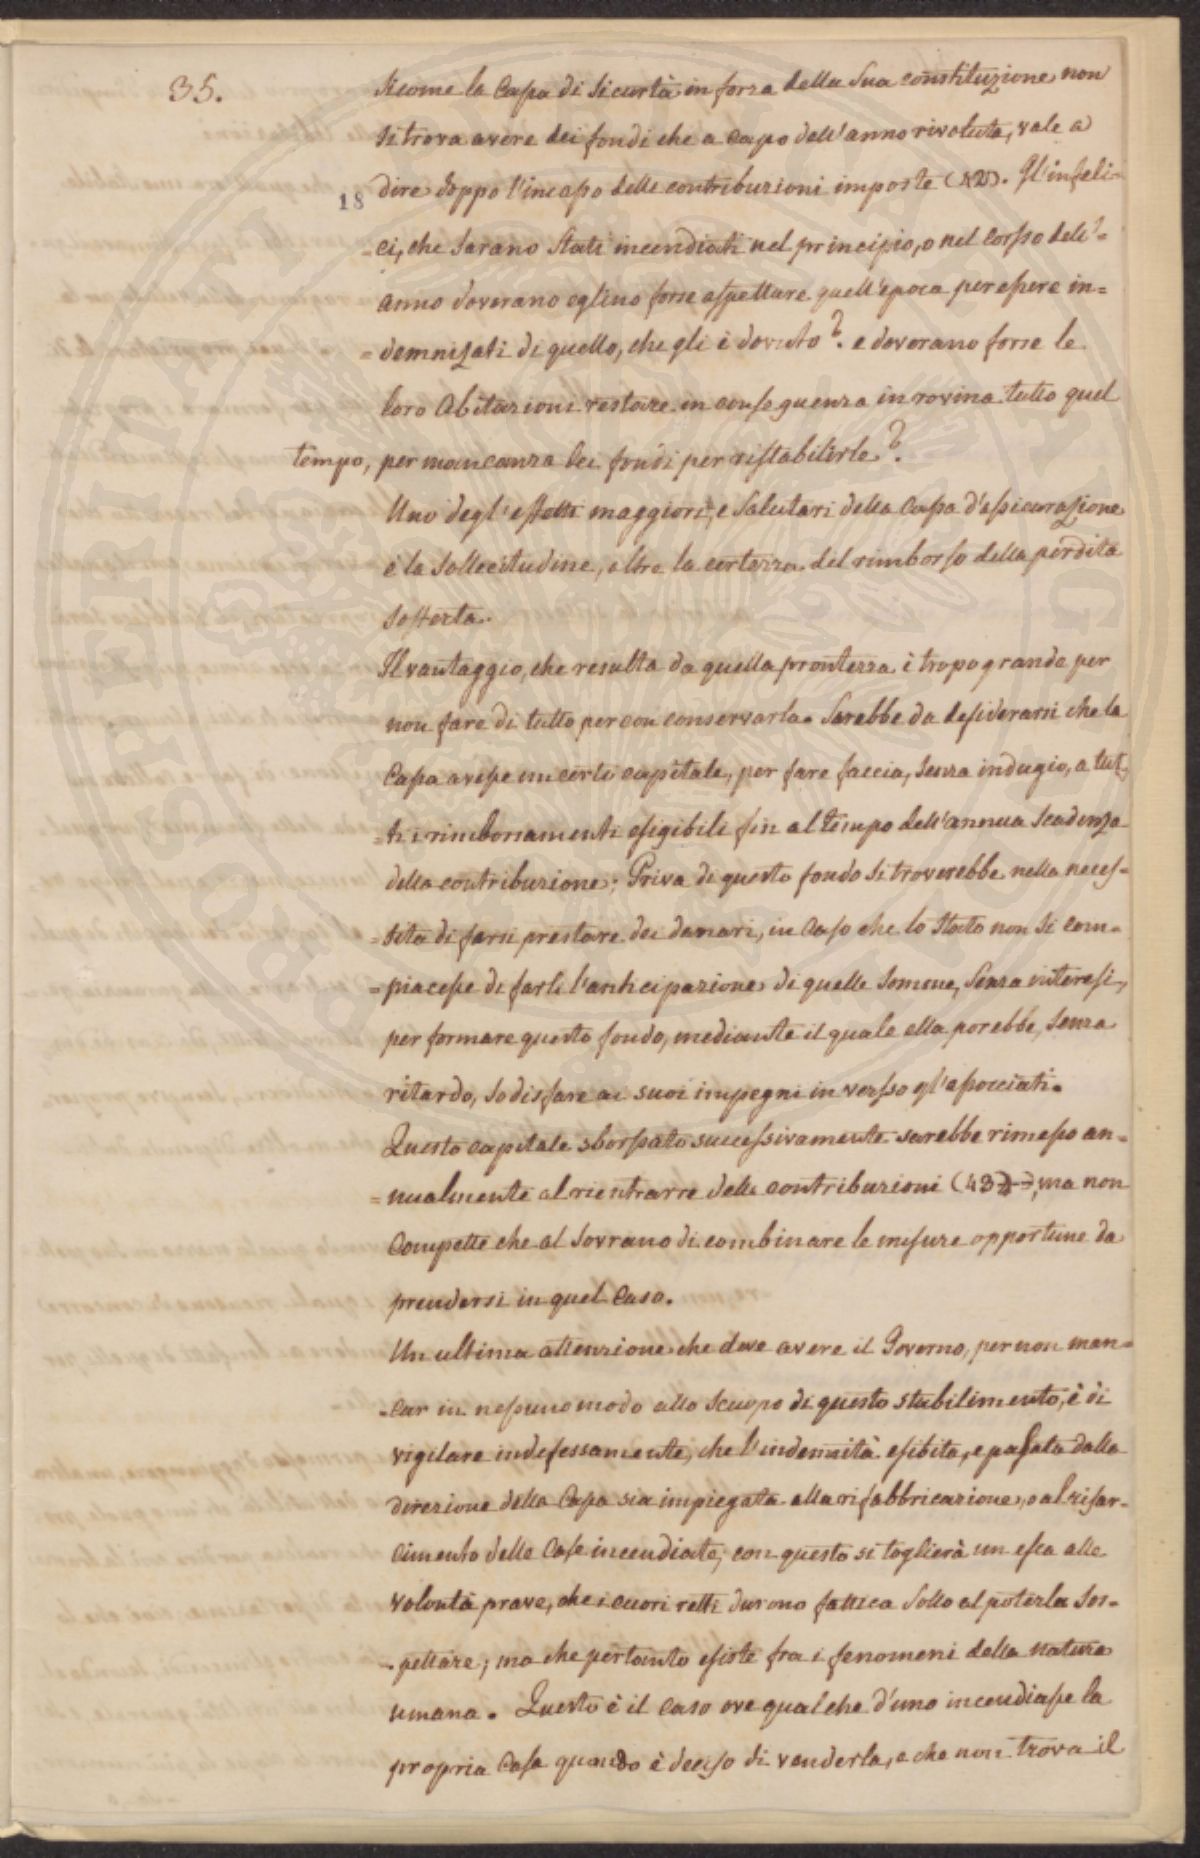 35.
Sicome la Cassa di Sicurtà in forza della Sua constituzione non
si trova avere dei fondi che a capo dell'anno rivoluto, vale a
dire doppo l'incasso delle contribuzioni imposte (42). Gl'infeli-
18
=ci, che Sarano Stati incendiati nel principio, o nel Corso dell'=
anno doverano eglino forse aspettare quell'epoca per essere in=
=demnizati di quello, che gli è dovuto? e doverano forse le
loro Abitazioni restare in conseguenza in rovina tutto quel
tempo, per mancanza dei fondi per ristabilirle?
Uno degl'effetti maggiori, e Salutari della Cassa d'assicurazione
è la Sollecitudine, oltre la certezza del rimborso della perdita
Sofferta.
Il vantaggio, che resulta da quella prontezza è tropo grande per
non fare di tutto per con conservarla. Sarebbe da desiderarsi che la
Cassa avesse un certo capitale, per fare faccia, Senza indugio, a tut-
=ti i rimborsamenti esigibili fin al tempo dell'annua Scadenza
della contribuzione; Priva di questo fondo Si troverebbe nella neces=
=sità di farsi prestare dei danari, in Caso che lo Stato non Si com=
=piacesse di farli l'anticipazione di quelle Somme, Senza interessi,
per formare questo fondo, mediante il quale ella porebbe, Senza
ritardo, Sodisfare ai suoi impegni in verso gl'associati.
Questo capitale sborsato successivamente sarebbe rimesso an=
=nualmente al rientrarre delle contribuzioni (43), ma non
Compette che al Sovrano di combinare le misure opportune da
prendersi in quel Caso.
Un ultima attenzione che deve avere il Governo, per non man=
=car in nessuno modo allo Scuopo di questo stabilimento, è di
vigilare indefessamente, che l'indennità esibita, e passata dalla
direzione della Cassa sia impiegata alla rifabbricazione, o al risar=
cimento delle Case incendiate; con questo si toglierà un esca alle
volontà prave, che i cuori retti durono fattica Sollo al poterla Sos=
=pettare; ma che pertanto esiste fra i fenomeni della natura
umana. Questo è il caso ove qualche d'uno incendiasse la
propria Casa quando è deciso di venderla, e che non trova il